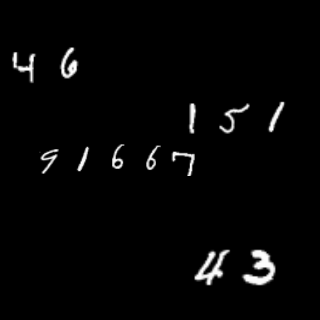 46
151
91667
43